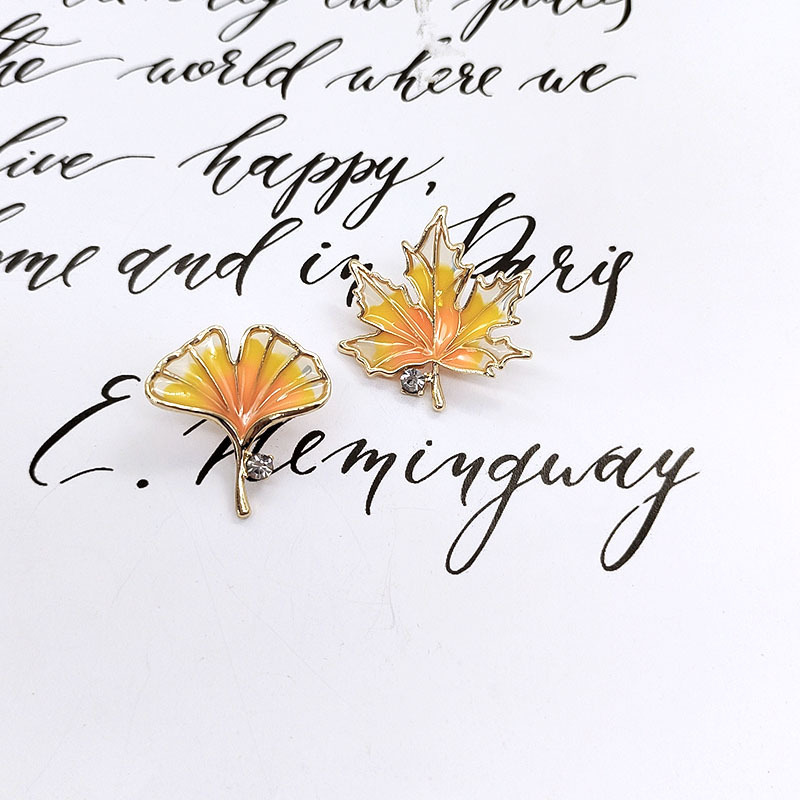 the world where we
live happy,
ome and in Paris
E. Hemingway